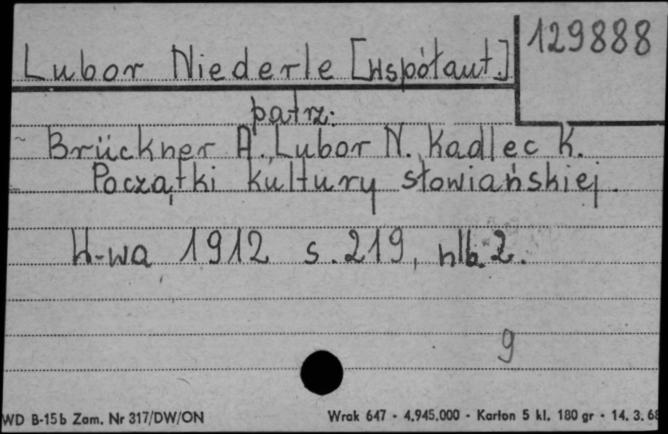 129888
Lubor Niederle [współaut.]
patrz:
Brückner A., Lubor N., Kadlec K.
Początki kultury słowiańskiej.
W-wa 1912 s. 219, nlb. 2.
9
WD B-15b Zam. Nr 317/DW/ON Wrak 647 - 4.945.000 - Karton 5 kl. 180 gr - 14. 3. 68